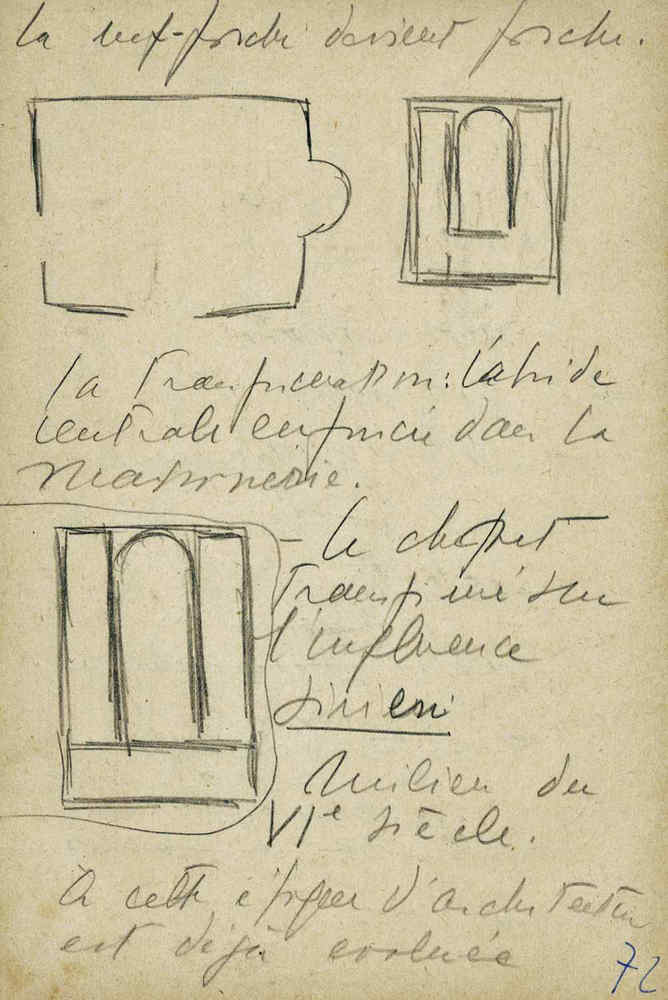 la nef-porche devient porche.
La transformation: l'abside
centrale enfoncée dans la
maçonnerie.
– le chevet
transformé sur
l'influence
sirien
Milieu du
VIe siècle.
A cette époque d'architecture
est déjà evoluée
72